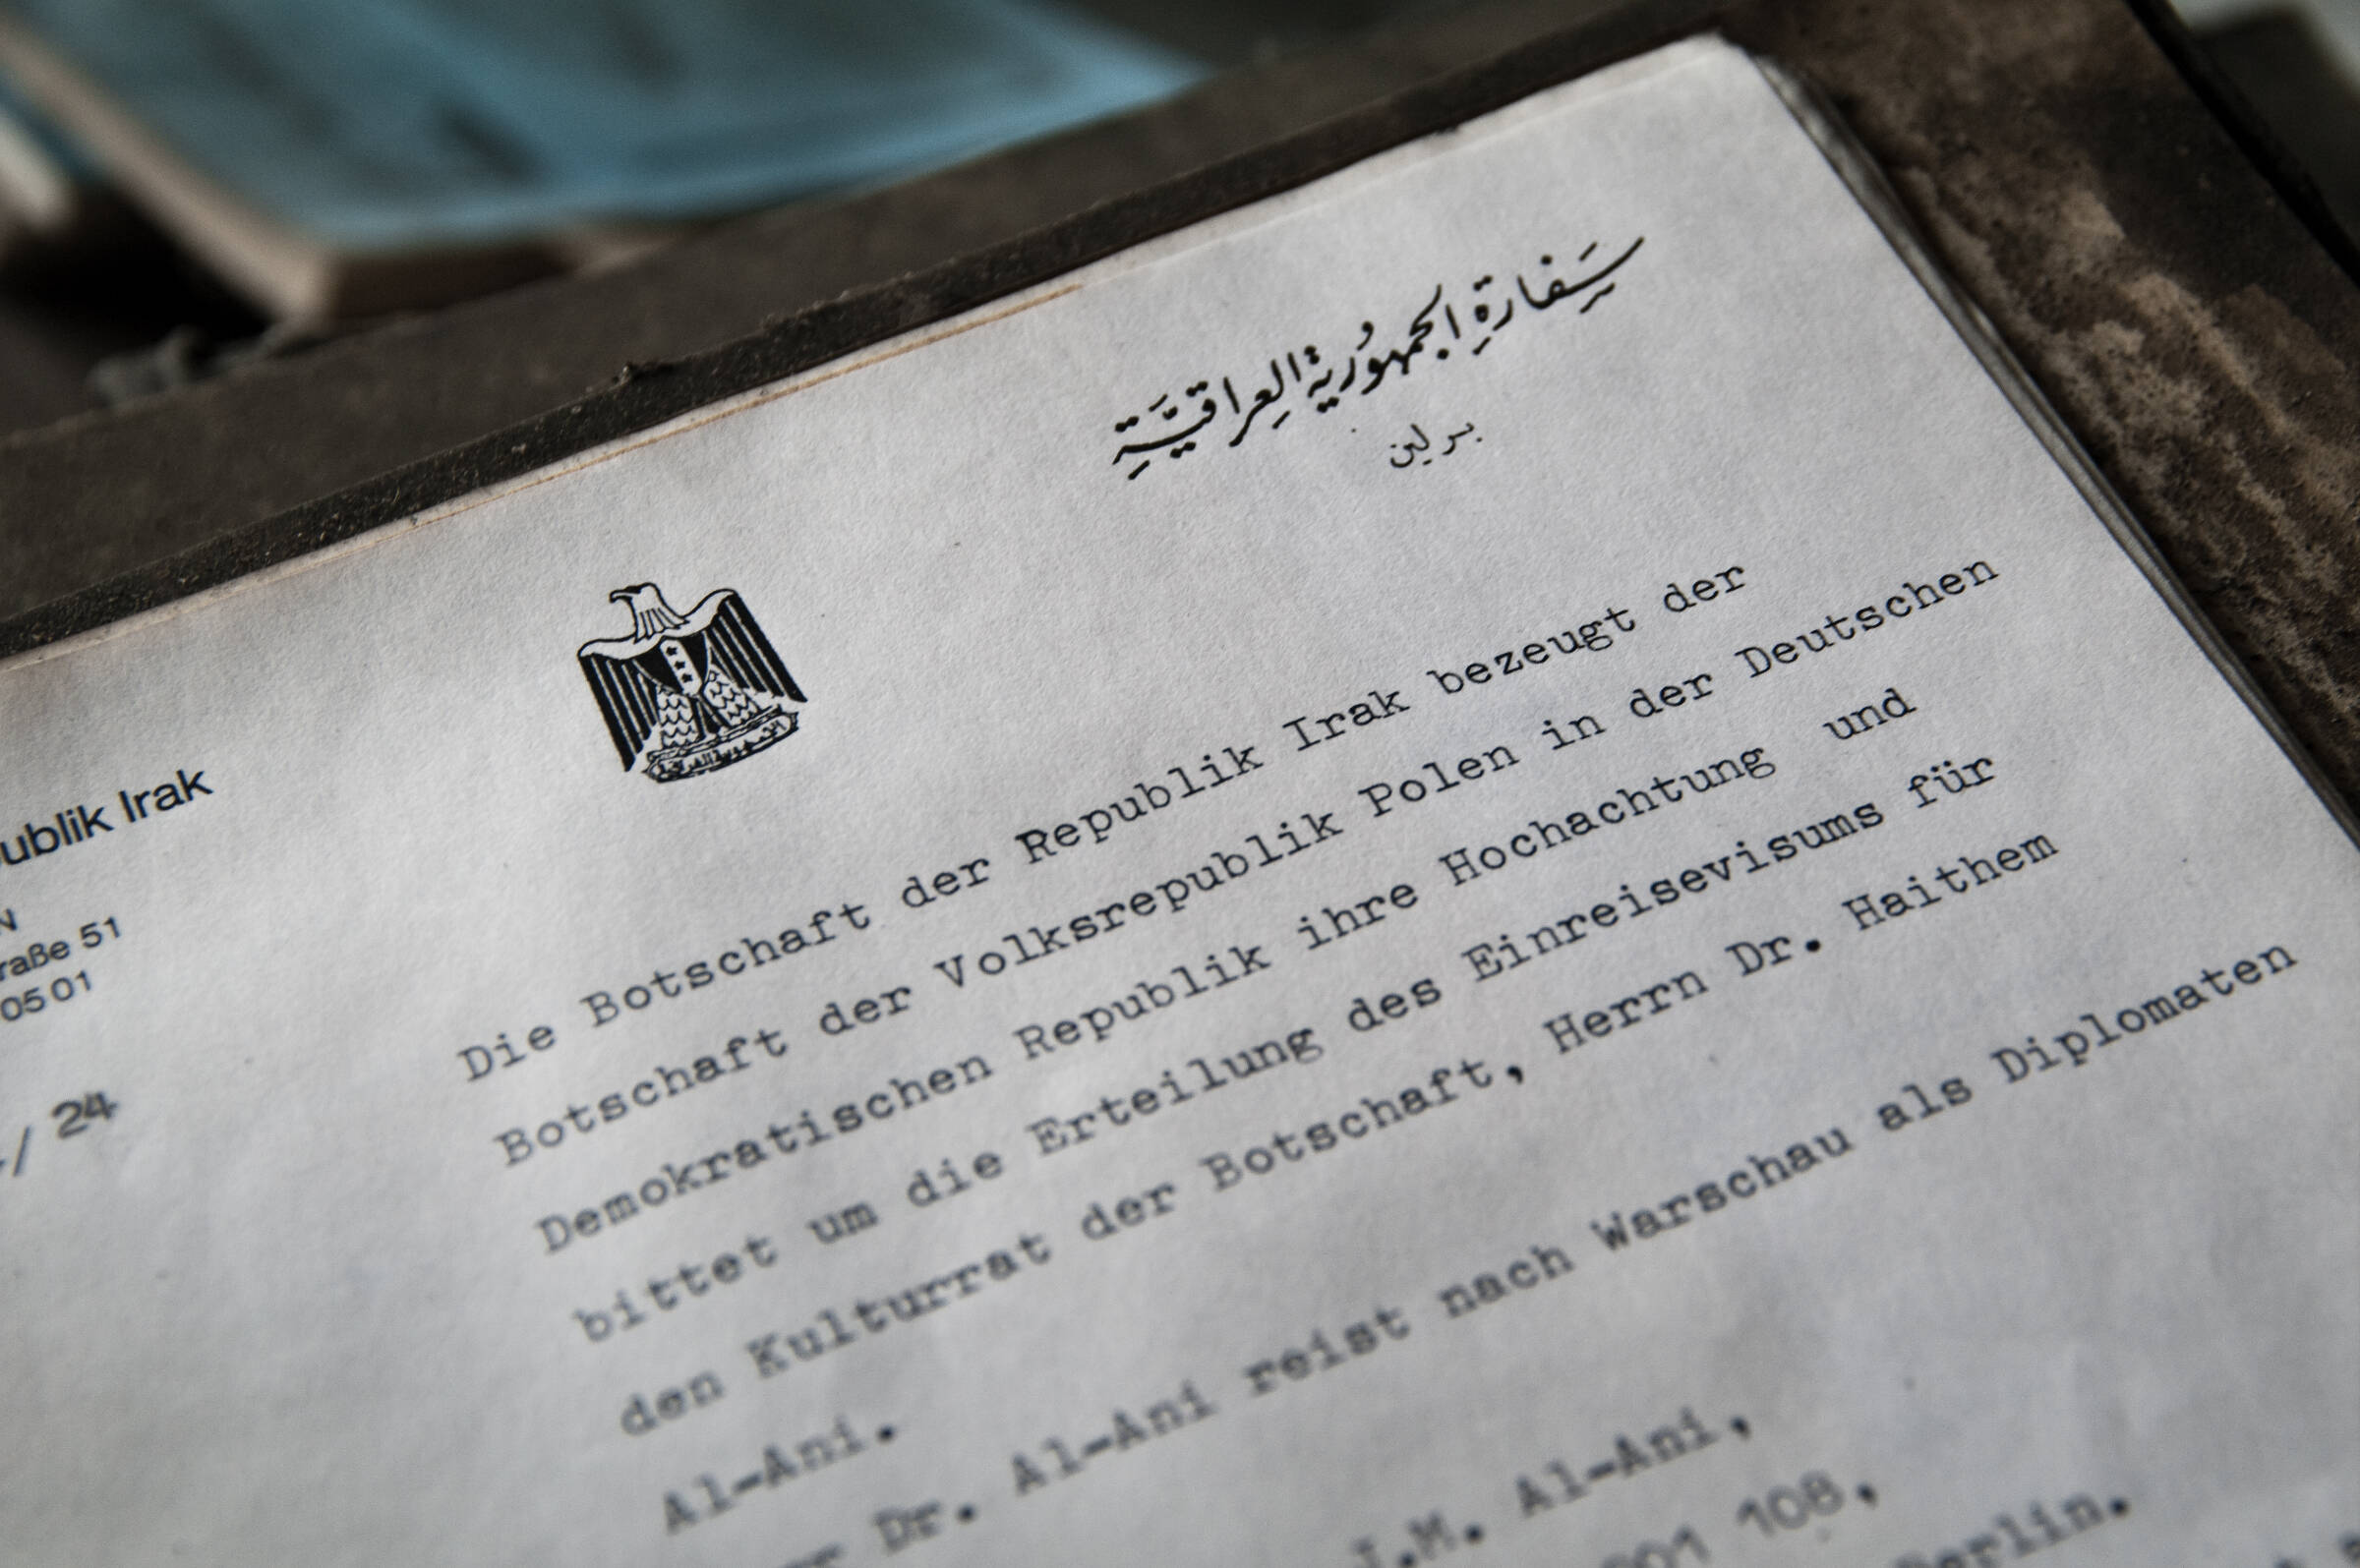 سَفارَةِ الجمهُوريّةِ العِراقيَّةِ
برلين
الجمهورية العراقية
ublik Irak
raße 51
0501
/ 24
Die Botschaft der Republik Irak bezeugt der
Botschaft der Volksrepublik Polen in der Deutschen
Demokratischen Republik ihre Hochachtung und
bittet um die Erteilung des Einreisevisums für
den Kulturrat der Botschaft, Herrn Dr. Haithem
Al-Ani.
Dr. Al-Ani reist nach Warschau als Diplomaten
J.M. Al-Ani,
108,
Berlin.